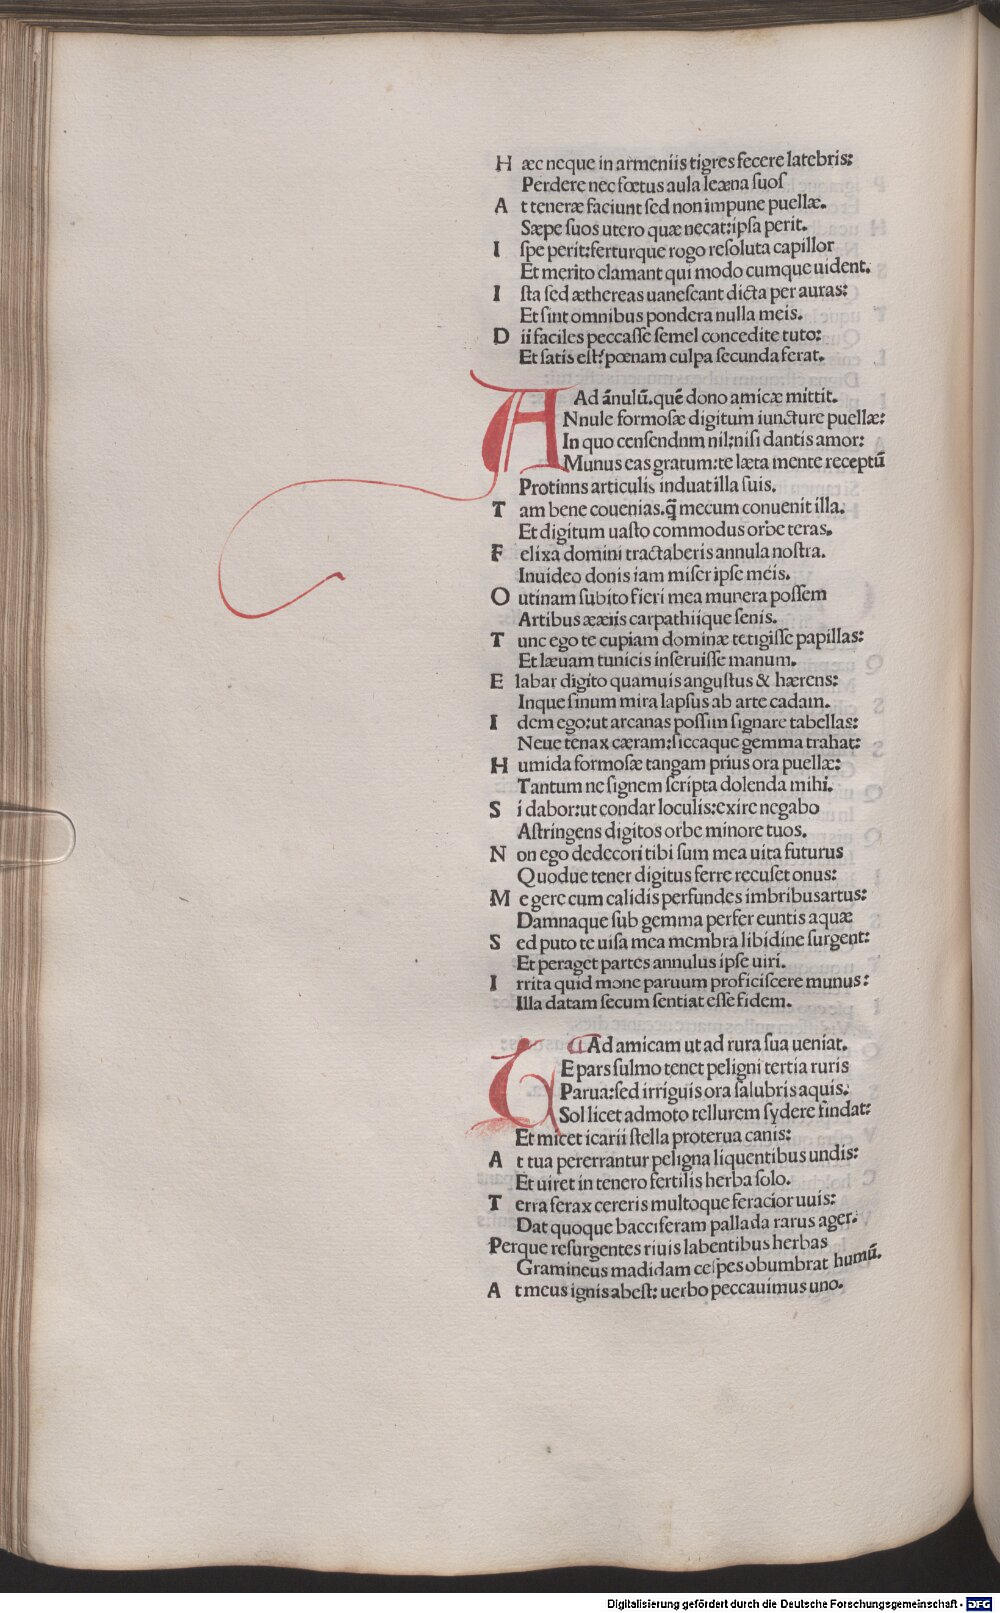 H æc neque in armeniis tigres fecere latebris:
Perdere nec fœtus aula leæna suos
A t teneræ faciunt sed non impune puellæ.
Sæpe suos utero quæ necat:ipsa perit.
I spe perit:ferturque rogo resoluta capillor
Et merito clamant qui modo cumque uident.
I sta sed æthereas uanescant dicta per auras:
Et sint omnibus pondera nulla meis.
D ii faciles peccasse semel concedite tuto:
Et satis est:pœnam culpa secunda ferat.
Ad ānulū.quē dono amicæ mittit.
A Nnule formosæ digitum iuncture puellæ:
In quo censendnm nil:nisi dantis amor:
Munus eas gratum:te læta mente receptū
Protinns articulis induat illa suis.
T am bene couenias.q̄ mecum conuenit illa.
Et digitum uasto commodus orbe teras.
F elixa domini tractaberis annula nostra.
Inuideo donis iam miser ipse meis.
O utinam subito fieri mea munera possem
Artibus ææiis carpathiique senis.
T unc ego te cupiam dominæ tetigisse papillas:
Et læuam tunicis inseruisse manum.
E labar digito quamuis angustus & hærens:
Inque sinum mira lapsus ab arte cadam.
I dem ego:ut arcanas possim signare tabellas:
Neue tenax cæram:siccaque gemma trahat:
H umida formosæ tangam prius ora puellæ:
Tantum ne signem scripta dolenda mihi.
S i dabor:ut condar loculis:exire negabo
Astringens digitos orbe minore tuos.
N on ego dedecori tibi sum mea uita futurus
Quodue tener digitus ferre recuset onus:
M e gere cum calidis perfundes imbribusartus:
Damnaque sub gemma perfer euntis aquæ
S ed puto te uisa mea membra libidine surgent:
Et peraget partes annulus ipse uiri.
I rrita quid mone paruum proficiscere munus:
Illa datam secum sentiat esse fidem.
Ad amicam ut ad rura sua ueniat.
E pars sulmo tenet peligni tertia ruris
Parua:sed irriguis ora salubris aquis.
Sol licet admoto tellurem sydere findat:
Et micet icarii stella proterua canis:
A t tua pererrantur peligna liquentibus undis:
Et uiret in tenero fertilis herba solo.
T erra ferax cereris multoque feracior uuis:
Dat quoque bacciferam pallada rarus ager.
Perque resurgentes riuis labentibus herbas
Gramineus madidam cespes obumbrat humū.
A t meus ignis abest: uerbo peccauimus uno.
Digitalisierung gefördert durch die Deutsche Forschungsgemeinschaft - DFG